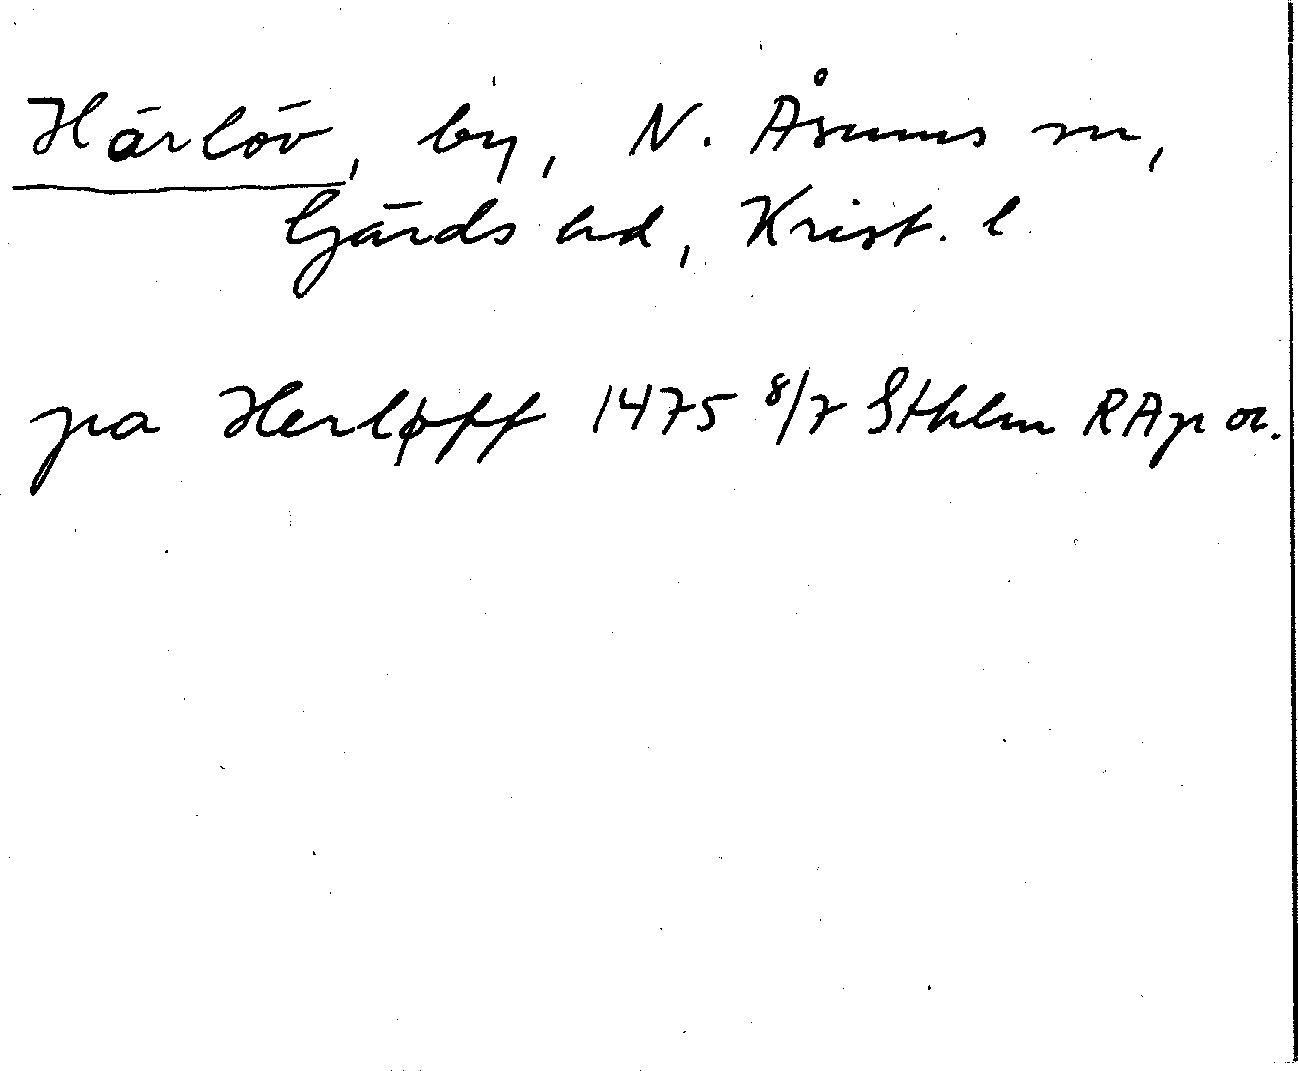 Härlöv, by, N. Åsums sn,
Gärds hd, Krist. l.
pa Herløff 1475 8/7 Sthlm RAp or.